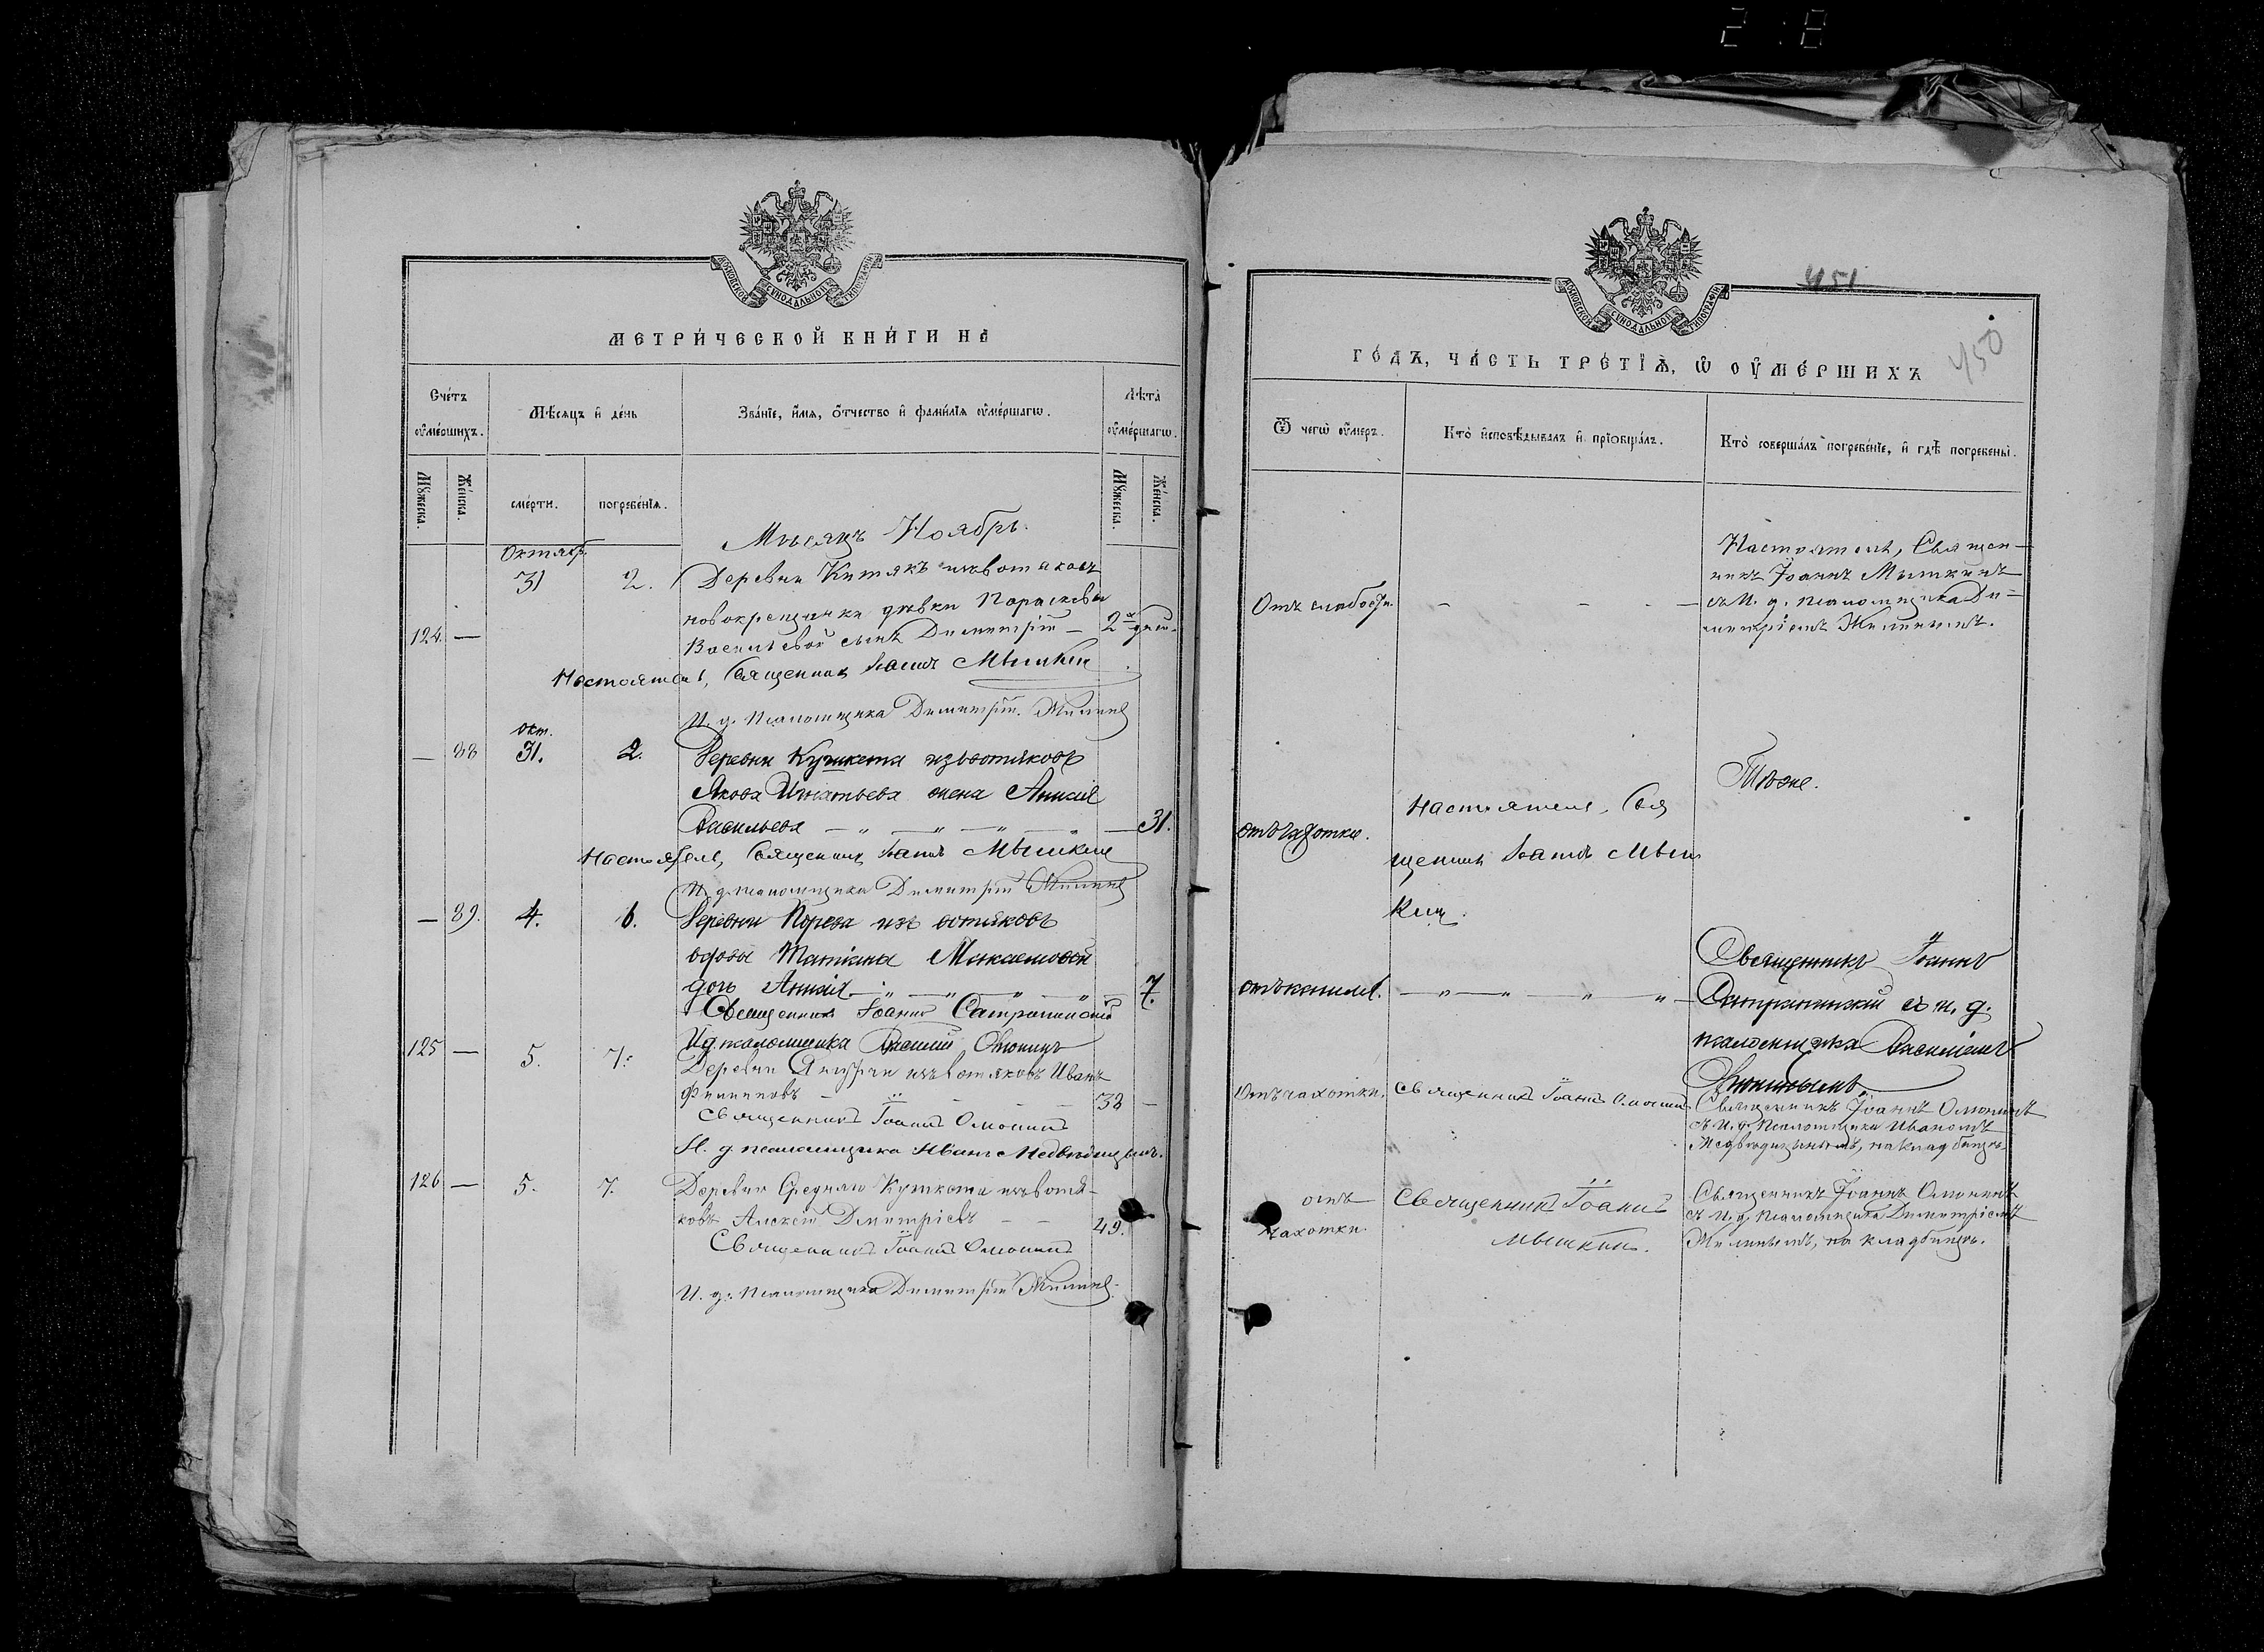 МЕТРИ́ЧЕСКОЙ КНИ́ГИ НА
Сче́тъ ᲂу҆ме́ршихъ.
Мѣ́сяцъ и҆ де́нь
Зва́нїе, и҆́мя, ѻ҆́тчество и҆ фами́лїя ᲂу҆ме́ршагѡ.
Лѣ́та ᲂу҆ме́ршагѡ.
Мꙋ́жеска.
Же́нска.
сме́рти.
погребе́нїя.
Мꙋ́жеска.
Же́нска.
Мѣсяцъ Ноябрь.
Октябр.
31 2. Деревни Китякъ изъ вотяковъ
новокрещенки дѣвки Параскевы
124. — Васильевой сынъ Димитрій — 2 дн.
Настоятель, Священникъ Іоаннъ Мышкин
И. д. псаломщика Димитрій Жилинъ
окт.
— 88 31. 2. Деревни Кушкета изъ вотяковъ
Якова Игнатьева жена Анисія
Васильева — 31.
Настоятель, Священникъ Іоаннъ Мышкин
И. д. псаломщика Димитрій Жилинъ
— 89. 4. 6. Деревни Пореза изъ вотяковъ
вдовы Татіаны Михаиловой
дочь Анисія — 7.
Священникъ Іоаннъ Сатрапинскій
И. д. псаломщика Василій Онютинъ
125 — 5. 7. Деревни изъ вотяковъ Иванъ
Филиповъ — 38 —
Священникъ Іоаннъ Омонинъ
И. д. псаломщика Иванъ Медвѣдицынъ.
126 — 5. 7. Деревни Среднягω Кушкета изъ вотя-
ковъ Алексѣй Димитріевъ — — 49.
Священникъ Іоаннъ Омонинъ
И. д. псаломщика Димитрій Жилинъ.
451
450
ГО́ДЪ, ЧА́СТЬ ТРЕ́ТЇѦ, Ѡ ОУ҆МЕ́РШИХЪ
Ѿ чегѡ̀ ᲂу҆́меръ.
Кто̀ и҆сповѣ́дывалъ и҆ прїѡбща́лъ.
Кто̀ соверша́лъ погребе́нїе, и҆ гдѣ̀ погребены̀.
Настоятель, Священ-
никъ Іоаннъ Мышкинъ
Отъ слабости. — — — съ И. д. псаломщика Ди-
митріемъ Жилинымъ.
Тѣ же.
отъ чахотки.
Настоятель, Свя
щенникъ Іоаннъ Мыш
кин.
отъ кашля. — Священникъ Іоаннъ
Сатрапинскій съ и. д.
псаломщика Василіемъ
Онютинымъ.
Отъ чахотки. Священникъ Іоаннъ Омонинъ
Священникъ Іоаннъ Омонинъ
съ И. д. Псаломщика Иваномъ
Медвѣдицынымъ, на кладбищѣ.
отъ
чахотки
Священникъ Іоаннъ
Мышкинъ.
Священникъ Іоаннъ Омонинъ
съ И. д. Псаломщика Димитріемъ
Жилинымъ, на кладбищѣ.